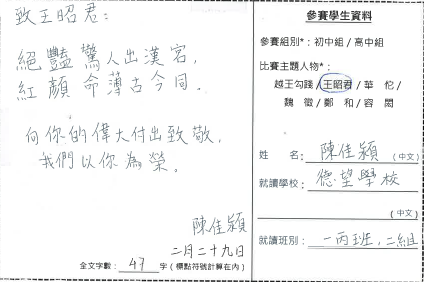 致王昭君：
絕豔驚人出漢宮，
紅顏命薄古今同。
向你的偉大付出致敬，
我們以你為榮。
陳佳穎
二月二十九日
全文字數：47 字（標點符號計算在內）
參賽學生資料
參賽組別*：初中組 / 高中組
比賽主題人物*：
越王勾踐 / 王昭君 / 華佗 /
魏徵 / 鄭和 / 容閎
姓名：陳佳穎（中文）
就讀學校：德望學校
（中文）
就讀班別：一丙班，二組